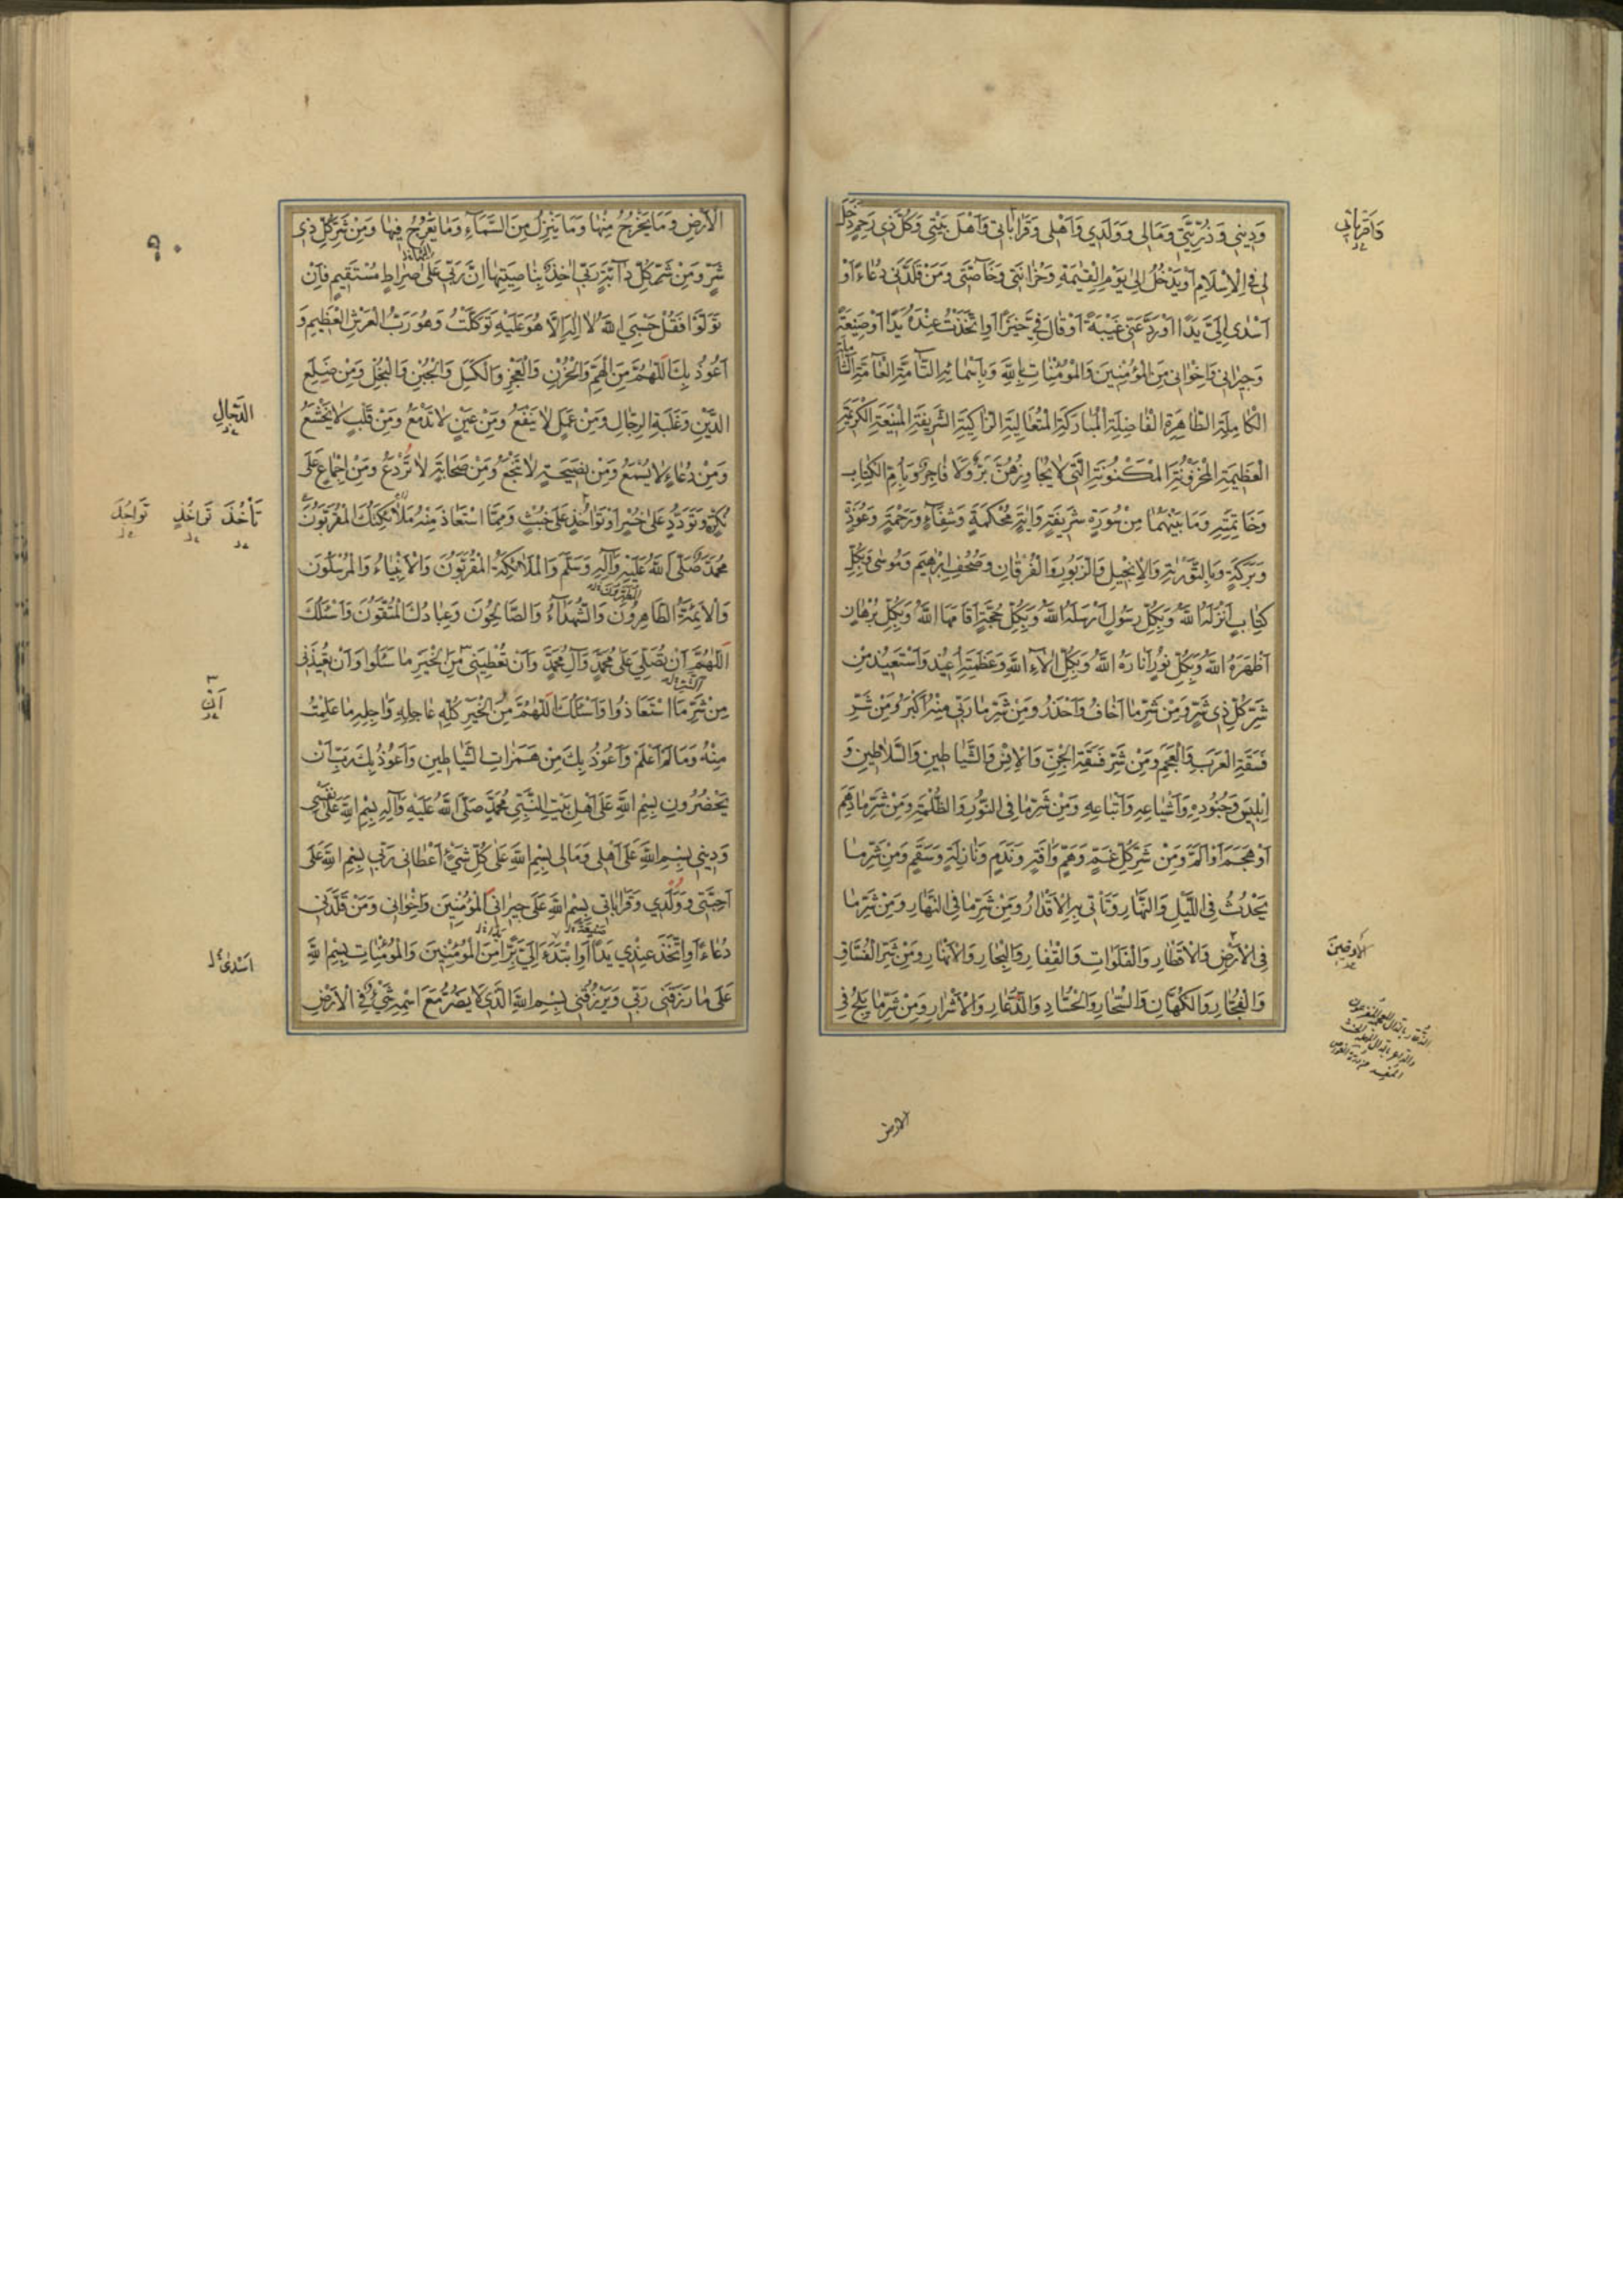 وَدِينِي وَذُرِّيَّتِي وَمَالِي وَوَلَدِي وَأَهْلِي وَقَرَابَاتِي وَأَهْلَ بَيْتِي وَكُلَّ ذِي رَحِمٍ دَخَلَ
لِي فِي الْإِسْلَامِ أَوْ يَدْخُلُ إِلَى يَوْمِ الْقِيٰمَةِ وَحُزَانَتِي وَخَاصَّتِي وَمَنْ قَلَّدَنِي دُعَاءً أَوْ
أَسْدَى إِلَيَّ يَدًا أَوْ رَدَّ عَنِّي غَيْبَةً أَوْ قَالَ فِيَّ خَيْرًا أَوِ اتَّخَذْتُ عِنْدَهُ يَدًا أَوْ صَنِيعَةً
وَجِيرَانِي وَإِخْوَانِي مِنَ الْمُؤْمِنِينَ وَالْمُؤْمِنَاتِ بِاللَّهِ وَبِأَسْمَائِهِ التَّامَّةِ الْعَامَّةِ الشَّامِلَةِ
الْكَامِلَةِ الطَّاهِرَةِ الْفَاضِلَةِ الْمُبَارَكَةِ الْمُتَعَالِيَةِ الزَّاكِيَةِ الشَّرِيفَةِ الْمَنِيعَةِ الْكَرِيمَةِ
الْعَظِيمَةِ الْمَخْزُونَةِ الْمَكْنُونَةِ الَّتِي لَا يُجَاوِزُهُنَّ بَرٌّ وَلَا فَاجِرٌ وَبِأُمِّ الْكِتَابِ
وَخَاتِمَتِهِ وَمَا بَيْنَهُمَا مِنْ سُورَةٍ شَرِيفَةٍ وَآيَةٍ مُحْكَمَةٍ وَشِفَاءٍ وَرَحْمَةٍ وَعُوذَةٍ
وَبَرَكَةٍ وَبِالتَّوْرٰيةِ وَالْإِنْجِيلِ وَالزَّبُورِ وَالْفُرْقَانِ وَصُحُفِ إِبْرٰهِيمَ وَمُوسَى وَبِكُلِّ
كِتَابٍ أَنْزَلَهُ اللَّهُ وَبِكُلِّ رَسُولٍ أَرْسَلَهُ اللَّهُ وَبِكُلِّ حُجَّةٍ أَقَامَهَا اللَّهُ وَبِكُلِّ بُرْهَانٍ
أَظْهَرَهُ اللَّهُ وَبِكُلِّ نُورٍ أَنَارَهُ اللَّهُ وَبِكُلِّ آلَاءِ اللَّهِ وَعَظَمَتِهِ أُعِيذُ وَأَسْتَعِيذُ مِنْ
شَرِّ كُلِّ ذِي شَرٍّ وَمِنْ شَرِّ مَا أَخَافُ وَأَحْذَرُ وَمِنْ شَرِّ مَا رَبِّي مِنْهُ أَكْبَرُ وَمِنْ شَرِّ
فَسَقَةِ الْعَرَبِ وَالْعَجَمِ وَمِنْ شَرِّ فَسَقَةِ الْجِنِّ وَالْإِنْسِ وَالشَّيَاطِينِ وَالسَّلَاطِينِ وَ
إِبْلِيسَ وَجُنُودِهِ وَأَشْيَاعِهِ وَأَتْبَاعِهِ وَمِنْ شَرِّ مَا فِي النُّورِ وَالظُّلْمَةِ وَمِنْ شَرِّ مَا دَهَمَ
أَوْ هَجَمَ أَوْ أَلَمَّ وَمِنْ شَرِّ كُلِّ غَمٍّ وَهَمٍّ وَآفَةٍ وَنَدَمٍ وَنَازِلَةٍ وَسَقَمٍ وَمِنْ شَرِّ مَا
يَحْدُثُ فِي اللَّيْلِ وَالنَّهَارِ وَتَأْتِي بِهِ الْأَقْدَارُ وَمِنْ شَرِّ مَا فِي النَّهَارِ وَمِنْ شَرِّ مَا
فِي الْأَرْضِ وَالْأَقْطَارِ وَالْفَلَوَاتِ وَالْقِفَارِ وَالْبِحَارِ وَالْأَنْهَارِ وَمِنْ شَرِّ الْفُسَّاقِ
وَالْفُجَّارِ وَالْكُهَّانِ وَالسُّحَّارِ وَالْحُسَّادِ وَالذُّعَّارِ وَالْأَشْرَارِ وَمِنْ شَرِّ مَا يَلِجُ فِي
وَأَقْرِبَائِي
الأرضين
الأرض
الْأَرْضِ وَمَا يَخْرُجُ مِنْهَا وَمَا يَنْزِلُ مِنَ السَّمَاءِ وَمَا يَعْرُجُ فِيهَا وَمِنْ شَرِّ كُلِّ ذِي
شَرٍّ وَمِنْ شَرِّ كُلِّ دَابَّةٍ رَبِّي آخِذٌ بِنَاصِيَتِهَا إِنَّ رَبِّي عَلَى صِرَاطٍ مُسْتَقِيمٍ فَإِنْ
تَوَلَّوْا فَقُلْ حَسْبِيَ اللَّهُ لَا إِلَهَ إِلَّا هُوَ عَلَيْهِ تَوَكَّلْتُ وَهُوَ رَبُّ الْعَرْشِ الْعَظِيمِ وَ
أَعُوذُ بِكَ اللَّهُمَّ مِنَ الْهَمِّ وَالْحُزْنِ وَالْعَجْزِ وَالْكَسَلِ وَالْجُبْنِ وَالْبُخْلِ وَمِنْ ضَلَعِ
الدَّيْنِ وَغَلَبَةِ الرِّجَالِ وَمِنْ عَمَلٍ لَا يَنْفَعُ وَمِنْ عَيْنٍ لَا تَدْمَعُ وَمِنْ قَلْبٍ لَا يَخْشَعُ
وَمِنْ دُعَاءٍ لَا يُسْمَعُ وَمِنْ نَصِيحَةٍ لَا تَنْجَعُ وَمِنْ صَحَابَةٍ لَا تَرْدَعُ وَمِنْ إِجْمَاعٍ عَلَى
نُكْرٍ وَتَوَدُّدٍ عَلَى خُسْرٍ أَوْ تَوَاخُذٍ عَلَى خُبْثٍ وَمِمَّا اسْتَعَاذَ مِنْهُ مَلَائِكَتُكَ الْمُقَرَّبُونَ
مُحَمَّدٌ صَلَّى اللَّهُ عَلَيْهِ وَآلِهِ وَسَلَّمَ وَالْمَلَائِكَةُ الْمُقَرَّبُونَ وَالْأَنْبِيَاءُ وَالْمُرْسَلُونَ
وَالْأَئِمَّةُ الطَّاهِرُونَ وَالشُّهَدَاءُ وَالصَّالِحُونَ وَعِبَادُكَ الْمُتَّقُونَ وَأَسْئَلُكَ
اللَّهُمَّ أَنْ تُصَلِّيَ عَلَى مُحَمَّدٍ وَآلِ مُحَمَّدٍ وَأَنْ تُعْطِيَنِي مِنَ الْخَيْرِ مَا سَئَلُوا وَأَنْ تُعِيذَنِي
مِنْ شَرِّ مَا اسْتَعَاذُوا وَأَسْئَلُكَ اللَّهُمَّ مِنَ الْخَيْرِ كُلِّهِ عَاجِلِهِ وَآجِلِهِ مَا عَلِمْتُ
مِنْهُ وَمَا لَمْ أَعْلَمْ وَأَعُوذُ بِكَ مِنْ هَمَزَاتِ الشَّيَاطِينِ وَأَعُوذُ بِكَ رَبِّ أَنْ
يَحْضُرُونِ بِسْمِ اللَّهِ عَلَى أَهْلِ بَيْتِ النَّبِيِّ مُحَمَّدٍ صَلَّى اللَّهُ عَلَيْهِ وَآلِهِ بِسْمِ اللَّهِ عَلَى نَفْسِي
وَدِينِي بِسْمِ اللَّهِ عَلَى أَهْلِي وَمَالِي بِسْمِ اللَّهِ عَلَى كُلِّ شَيْءٍ أَعْطَانِي رَبِّي بِسْمِ اللَّهِ عَلَى
أَحِبَّتِي وَوَلَدِي وَقَرَابَاتِي بِسْمِ اللَّهِ عَلَى جِيرَانِي الْمُؤْمِنِينَ وَإِخْوَانِي وَمَنْ قَلَّدَنِي
دُعَاءً أَوِ اتَّخَذَ عِنْدِي يَدًا أَوِ ابْتَدَءَ إِلَيَّ بِرًّا مِنَ الْمُؤْمِنِينَ وَالْمُؤْمِنَاتِ بِسْمِ اللَّهِ
عَلَى مَا رَزَقَنِي رَبِّي وَيَرْزُقُنِي بِسْمِ اللَّهِ الَّذِي لَا يَضُرُّ مَعَ اسْمِهِ شَيْءٌ فِي الْأَرْضِ
الدجال
تَأْخُذَ تَوَاخُذٍ تَوَاخُذَ
أَنْ
أسدى